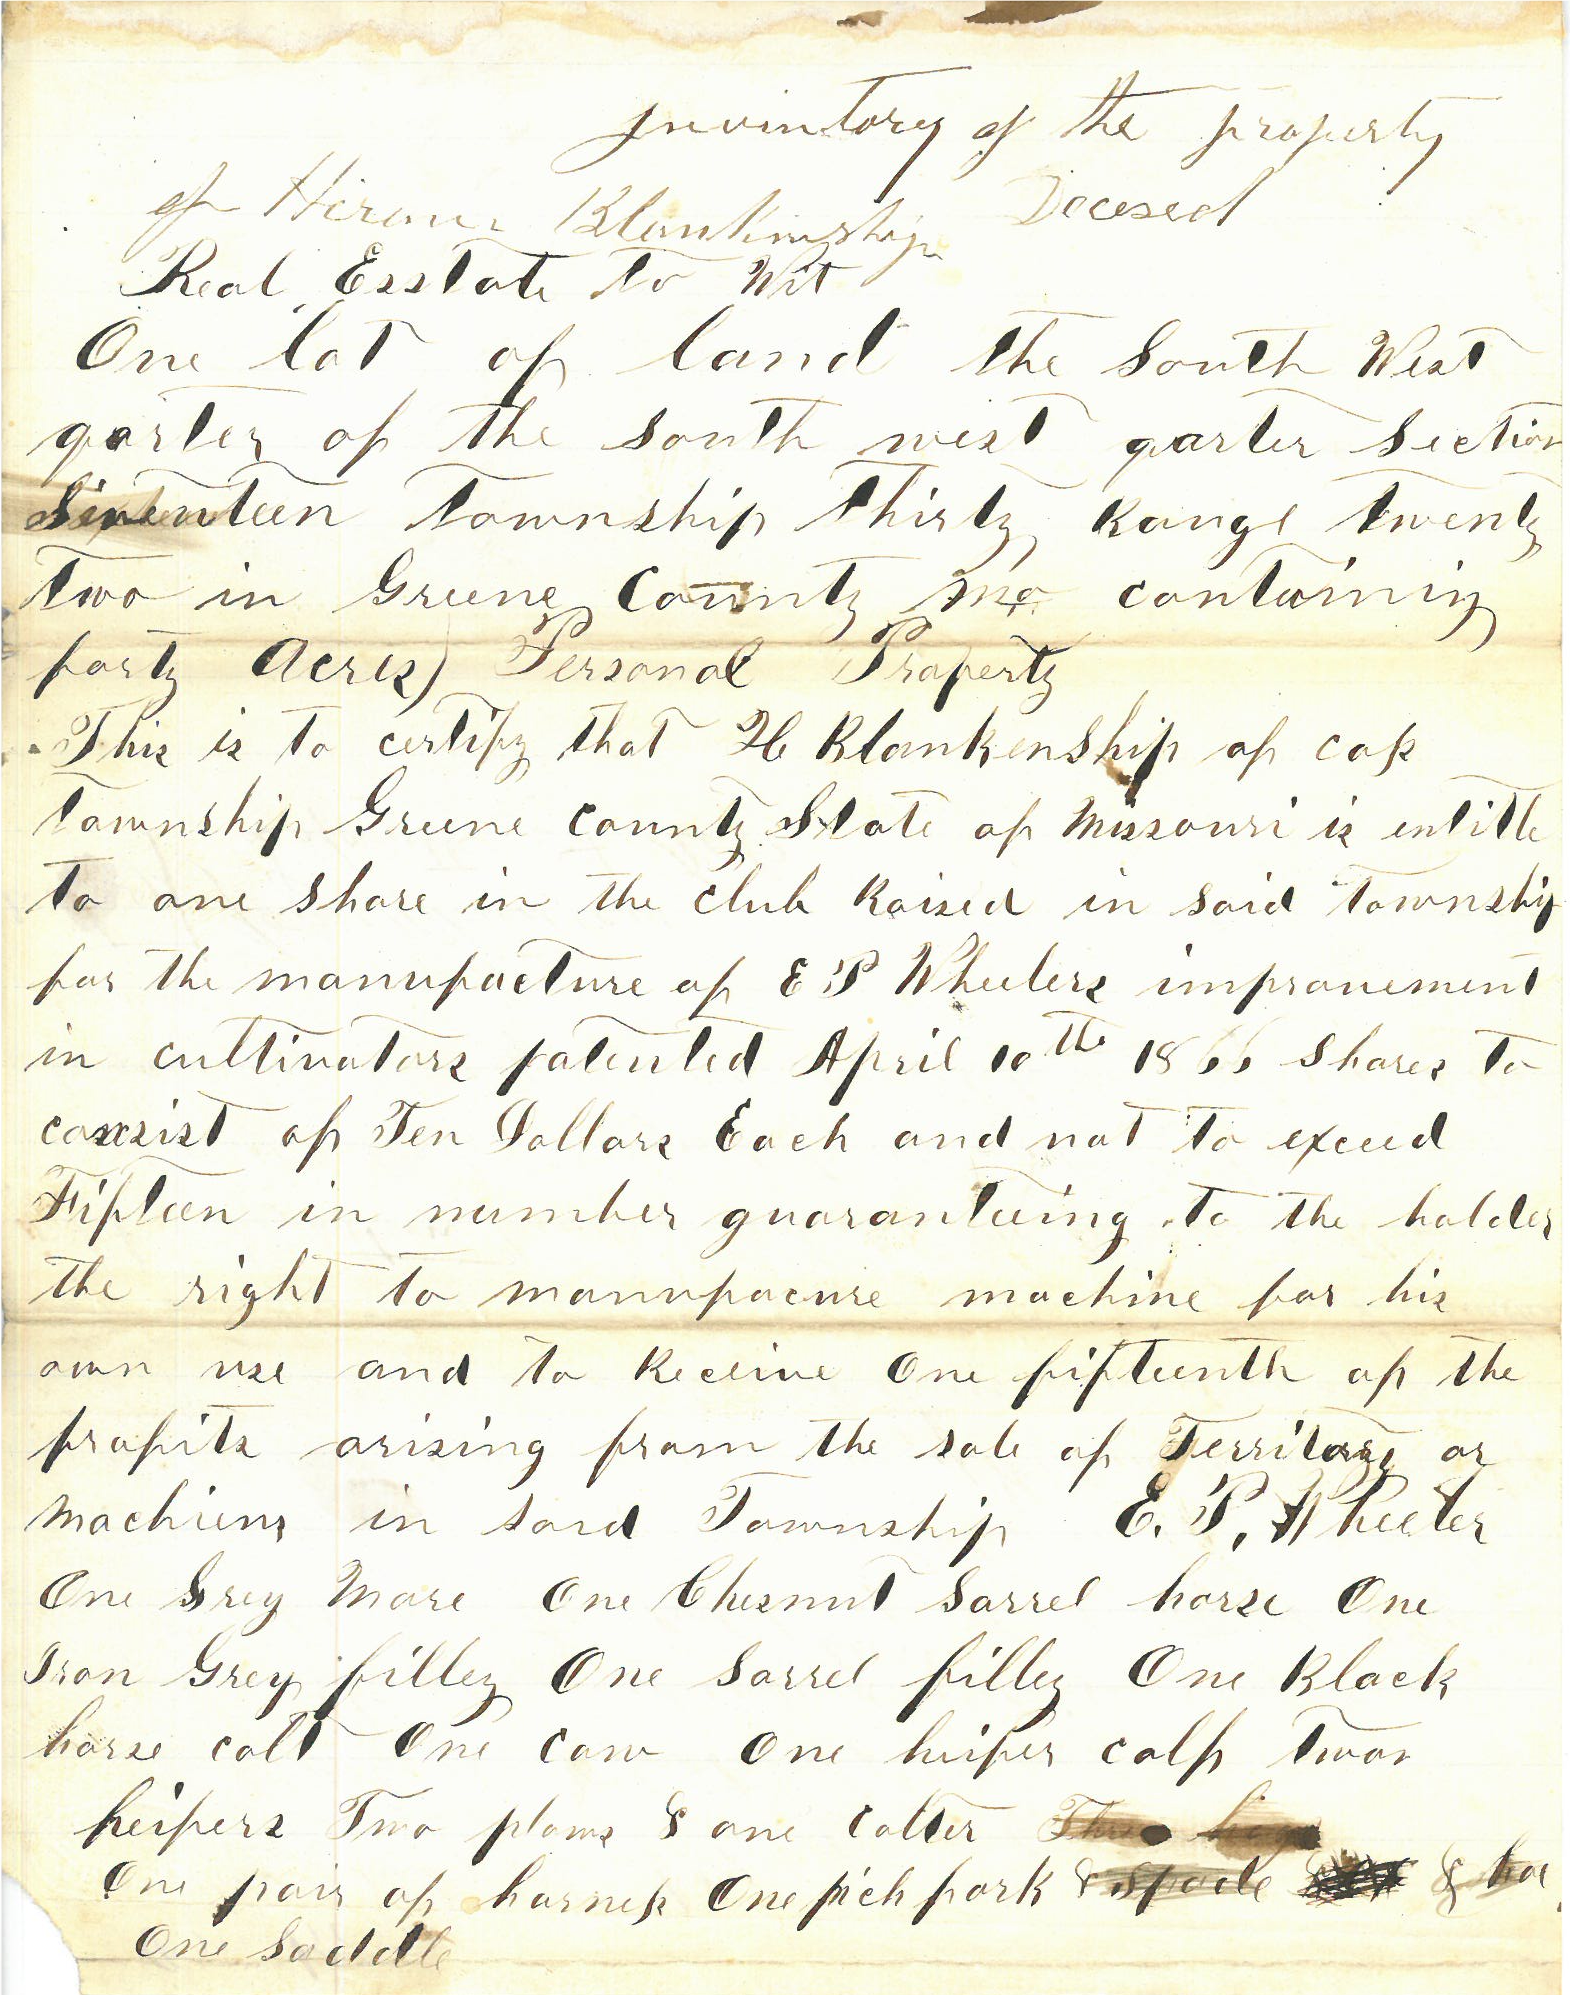 Invintory of the property
of Hiram Blankinship Decesed
Real Esstate to Wit
One lot of land the South West
qarter of the south west qarter Section
Seventeen Township Thirty Range twenty
two in Greene County Mo containing
forty Acres) Personal Property
This is to certify that H Blankenship of cass
township Greene County State of Missouri is entitle
to one share in the club Raised in said township
for the manufacture of E P Wheelers improvement
in cultivators patented April 10th 1866 shares to
consist of Ten Dollars Each and not to exceed
Fifteen in number guaranteeing to the holder
the right to manufacure machine for his
own use and to Receive One fifteenth of the
profits arising from the sale of Territory or
machiens in said Township E. P. Wheeler
One Grey Mare One Chesnut Sorrel horse One
Iron Grey filley One Sorrel filley One Black
horse colt One cow One heifer calf two
heifers Two plows & one Colter
One pair of harness One pich fork & spade & hoe
One Saddle